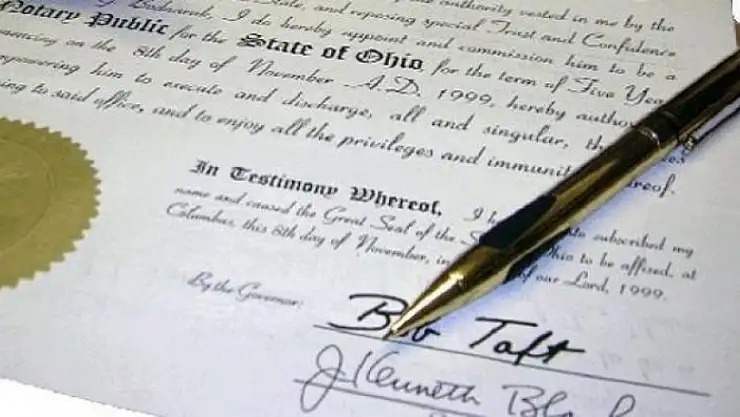 State, and reposing special Trust and Confidence
authority vested in me by the
I do hereby appoint and commission him to be a
Notary Public for the State of Ohio for the term of Five
on the 8th day of November A.D. 1999, hereby
him to execute and discharge, all and singular,
to said office, and to enjoy all the privileges and
In Testimony Whereof, I
name and caused the Great Seal of the
subscribed my
Columbus, this 8th day of November, in
to be affixed, at
of our Lord, 1999.
By the Governor:
Bob Taft
J Kenneth